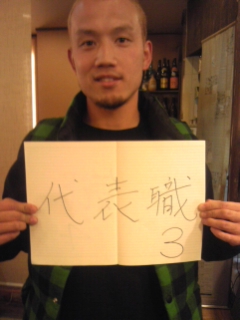 代表職
3